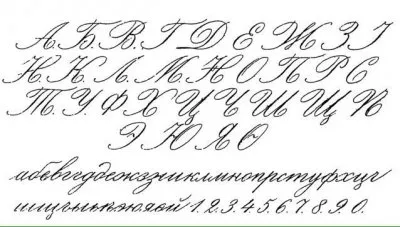 А.Б.В.Г Д Е Ж З І
И.К.Л.М.Н О П Р С
Т.У.Ф Х Ц Ч Ш Щ Ѣ
Э Ю Я Ѳ
абвгдежзиклмнопрстуфхцч
1.2.3.4.5.6.7.8.9.0.